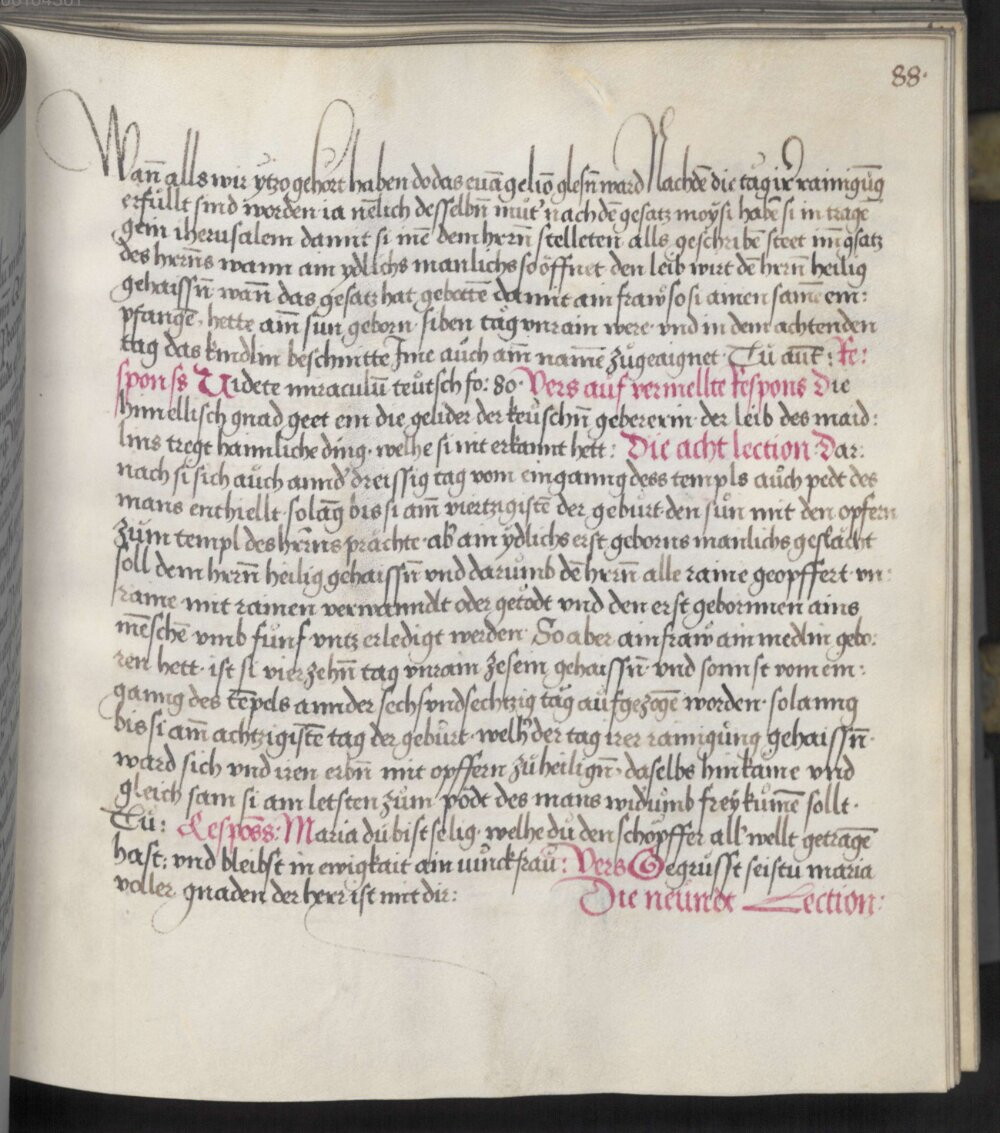 88·
Wan̄ alls wir ÿtzo gehört haben do das euāgelio͂ glesn̄ ward Nachdē die tag irˀ rainigūg
erfüllt sind worden · ia nēlich desselbn̄ mutˀ nach dē gesatz moÿsi habē si in tragē
gein iherusalem damit si inē dem herrn̄ stelleten alls geschribē steet im̄ gsatz
des herrn̄s wann ain ÿdlichs manlichs so öffnet den leib wirt dē herrn̄ heilig
gehaissn̄ · wan̄ das gesatz hat gebottē damit ain fraw so si ainen samē em:
pfangē, hette ain̄ sun geborn · siben tag vnrain were · vnd in dem achtenden
tag das kindlin beschnitte Ime auch ain̄ namē zugeaignet · Tu aut̄: Re:
sponss Uidete miraculū teutsch fo: 80 · Vers auf vermellte Respons Die
himellisch gnad geet ein die gelider der keuschn̄ gebererin · der leib des maid:
lins tregt haimliche ding · welhe si nit erkannt hett: Die acht lection · Dar:
nach si sich auch annd dreissig tag vom einganng dess templs auch pedt des
mans enthiellt · solāg bis si am̄ viertzigistē der geburt · den sun mit den opfern
zum templ des herrns prächte · ab ain ÿdlichs erst geborns manlichs geslächt
soll dem herrn̄ heilig gehaissn̄ vnd darumb dē herrn̄ alle raine geopffert · vn:
raine mit rainen verwanndt oder getödt vnd den erst gebornnen ains
mēschē vmb funf vntz erledigt werden · So aber ain fraw ain medlin gebo:
ren hett · ist si vierzehn̄ tag vnrain zesein gehaissn̄ · vnd sonnst vom ein:
ganng des tēpels annder sechs vnd sechtzig tag aufgezogē worden · solanng
bis si am̄ achtzigistē tag der geburt · welhˀ der tag irer rainigung gehaissn̄ ·
ward sich vnd iren erbn̄ mit opffern zu heilign̄ · daselbs hin kame vnd
gleich sam si am letsten zum pödt des mans widumb frey kumē sollt ·
Tu: Respōss: Maria du bist selig · welhe du den schöpffer all wellt getragē
hast: vnd bleibst in ewigkait ain iunckfrau: Vers Gegrüsst seistu maria
voller gnaden der herr ist mit dir: Die neundt Lection: